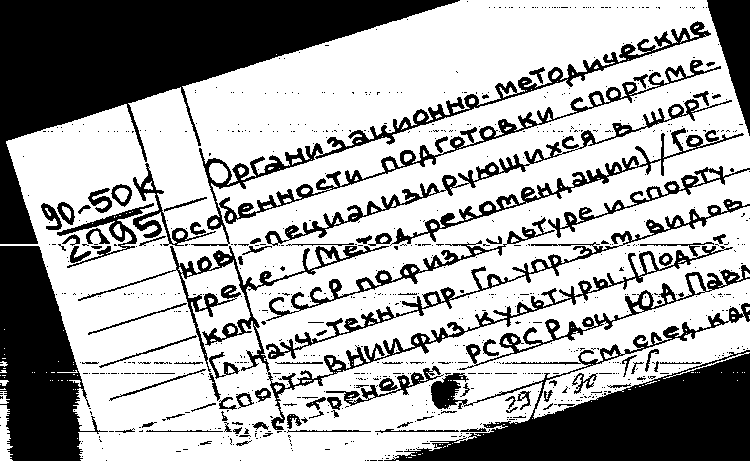 90-50К
2995
Организационно-методические
особенности подготовки спортсме-
нов, специализирующихся в шорт-
треке: (Метод. рекомендации) / Гос.
ком. СССР по физ. культуре и спорту.
Гл. науч.-техн. упр. Гл. упр. зим. видов
спорта, ВНИИ физ. культуры; [Подгот.
засл. тренером РСФСР доц. Ю.А. Павл
См. след. кар
29/V-90 Т.Г.